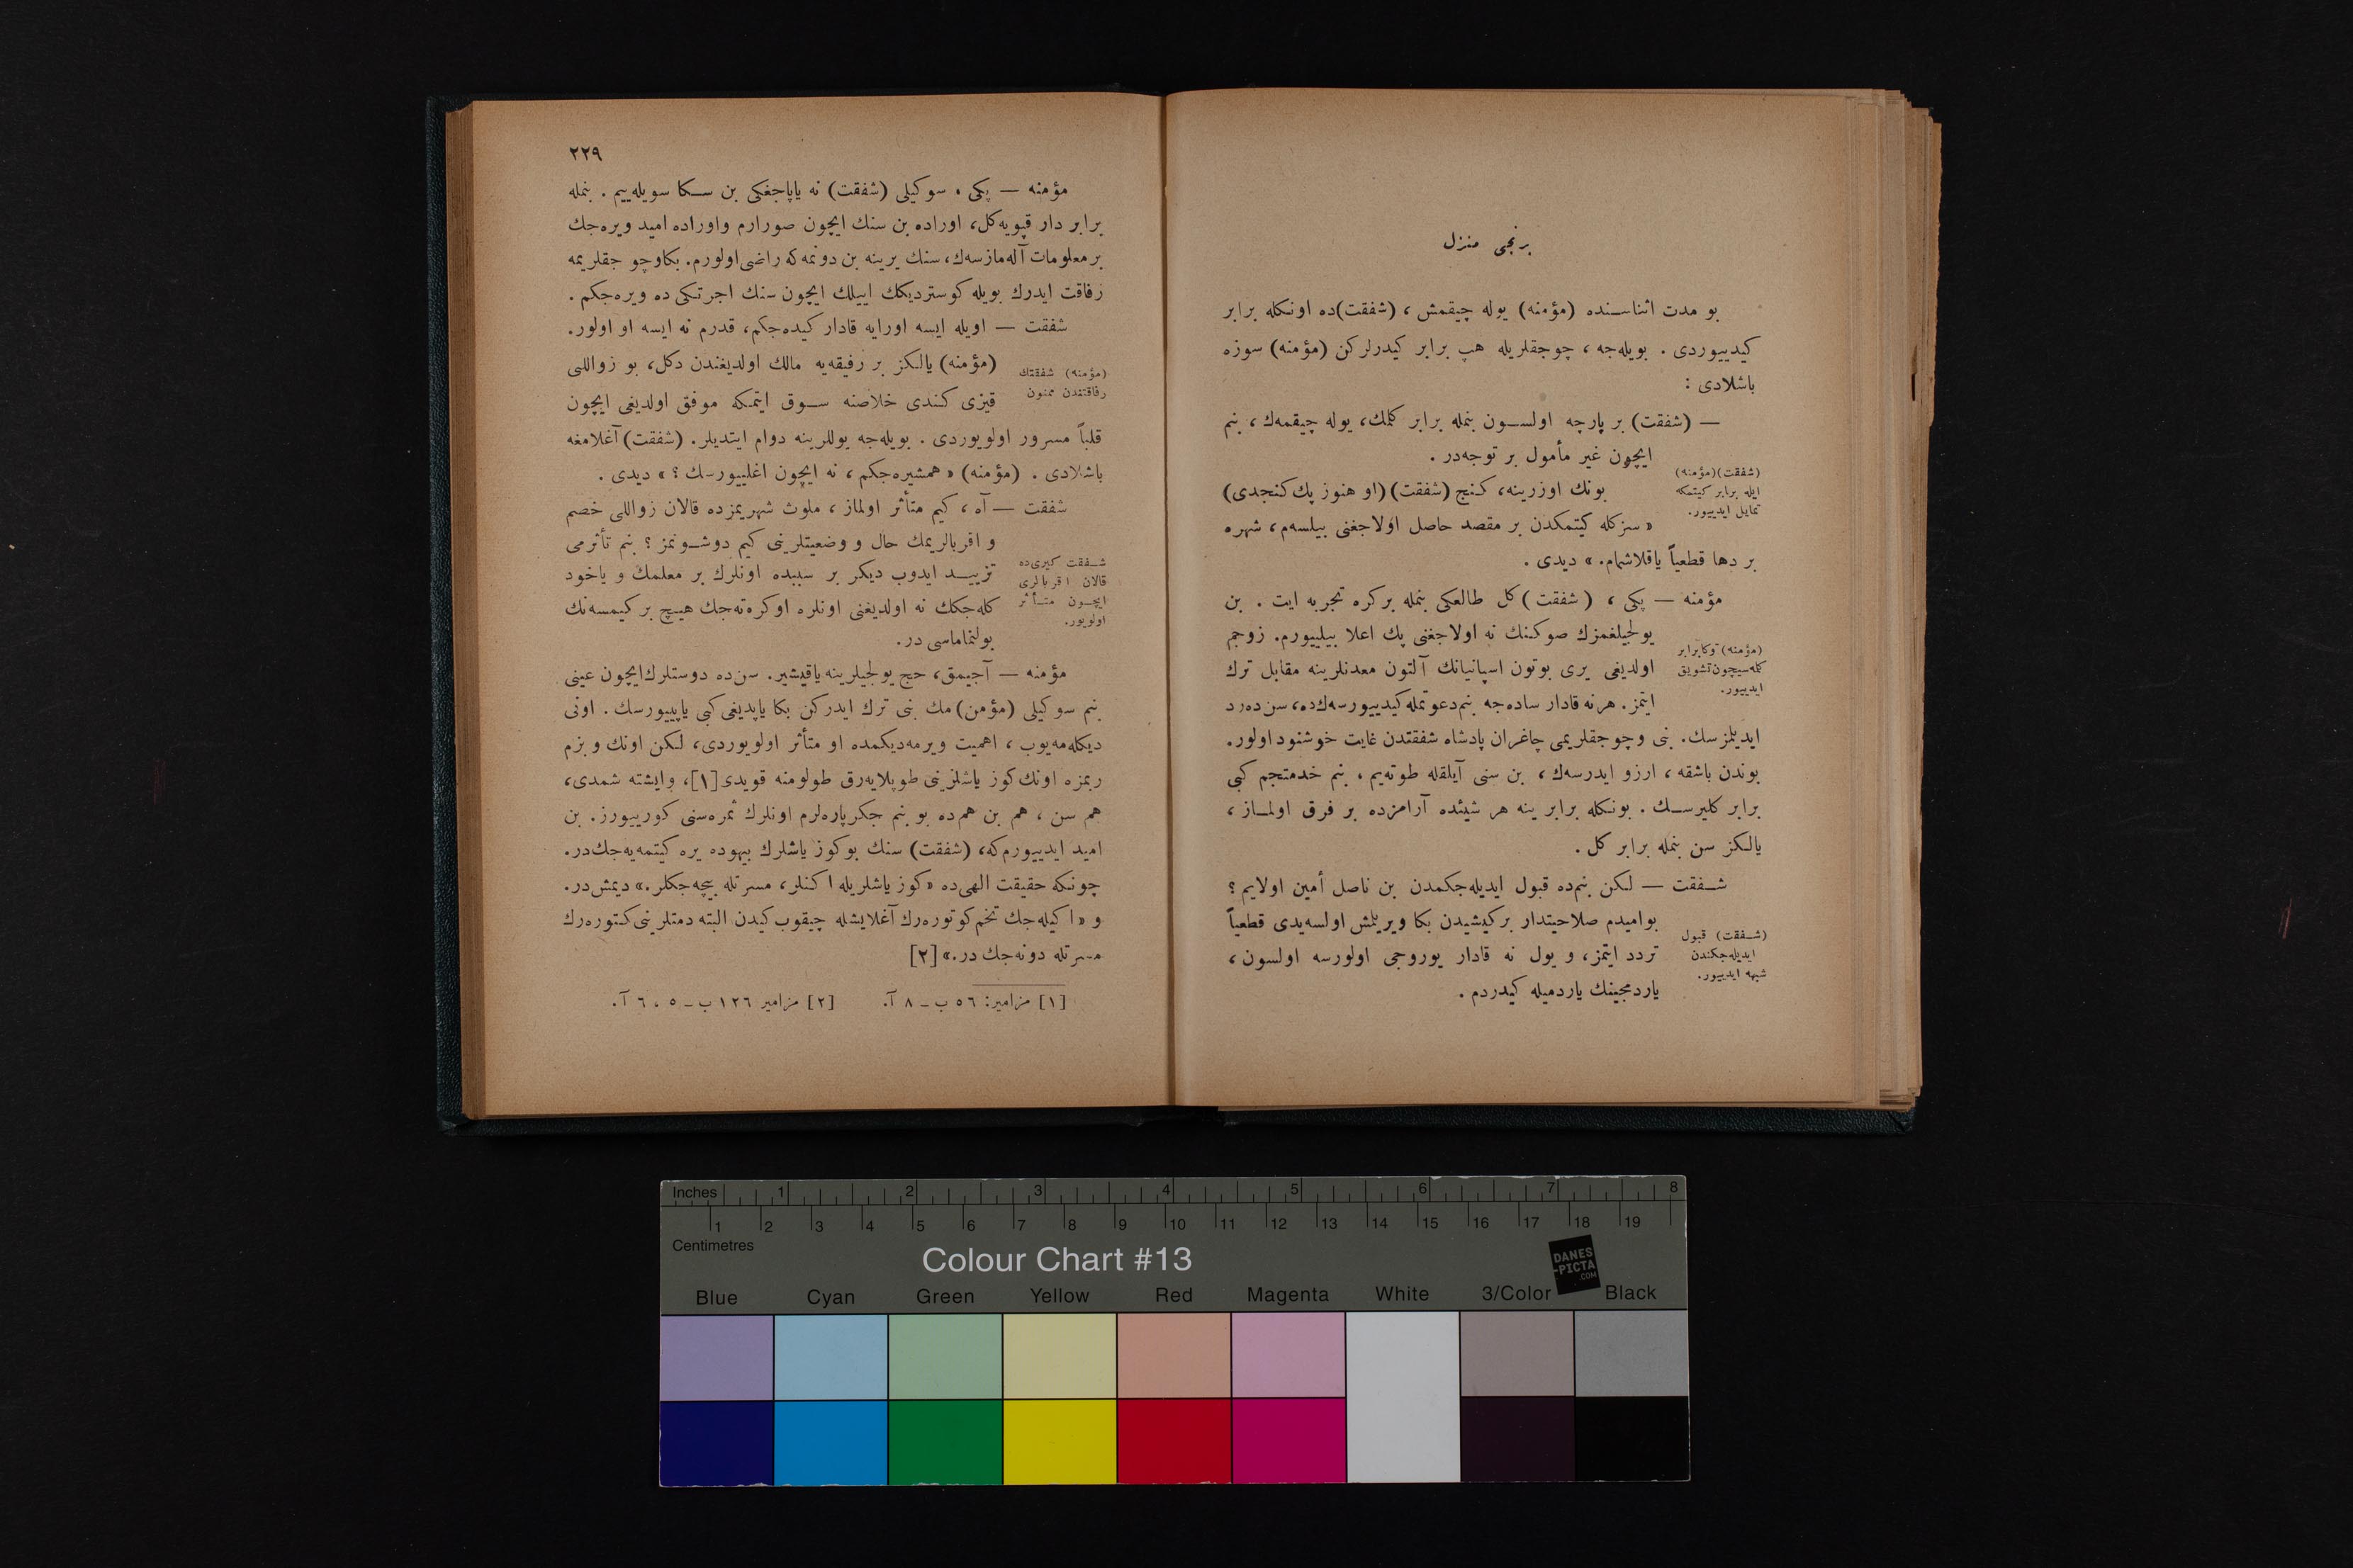 برنجی منزل
بو مدت اثناسنده (مؤمنه) یوله چیقمش ، (شفقت)ده اونکله برابر
کیدییوردی . بویله‌جه ، چوجقلریله هپ برابر کیدرلرکن (مؤمنه) سوزه
باشلادی :
— (شفقت) بر پارچه اولسون بنمله برابر کلمك، یوله چیقمه‌ك ، بنم
ایچون غیر مأمول بر توجه‌در .
(شفقت)(مؤمنه)
ایله برابر کیتمکه
تمایل ایدییور.
بونك اوزرینه، کنج (شفقت) (او هنوز پك کنجدی)
« سزکله کیتمکدن بر مقصد حاصل اولاجغنی بیلسه‌م ، شهره
بر دها قطعیاً یاقلاشمام. » دیدی .
مؤمنه — پکی ، (شفقت) کل طالعکی بنمله برکره تجربه ایت . بن
یولجیلغمزك صوکنك نه اولاجغنی پك اعلا بیلییورم. زوجم
(مؤمنه) وکابرابر
کلمه‌سیچون تشویق
ایدییور.
اولدیغی یری بوتون اسپانیانك آلتون معدنلرینه مقابل ترك
ایتمز . هر نه قادار ساده‌جه بنم دعوتمله کیدییورسه‌ك‌ده، سن ده رد
ایدیلمزسك. بنی وچوجقلریمی چاغران پادشاه شفقتدن غایت خوشنود اولور.
بوندن باشقه ، ارزو ایدرسه‌ك ، بن سنی آیلقله طوته‌یم ، بنم خدمتجم کبی
برابر کلیرسك . بونکله برابر ینه هر شیئده آرامزده بر فرق اولماز ،
یالکز سن بنمله برابر کل .
شفقت — لکن بنم‌ده قبول ایدیله‌جکمدن بن ناصل أمین اولایم ؟
بوامیدم صلاحیتدار بر کیشیدن بکا ویریلمش اولسه‌یدی قطعیاً
(شفقت) قبول
ایدیله‌جکندن
شبهه ایدییور.
تردد ایتمز، و یول نه قادار یوروجی اولورسه اولسون ،
یاردمجینك یاردمیله کیدردم .
٢٢٩
مؤمنه — پکی ، سوکیلی (شفقت) نه یاپاجغکی بن سکا سویله‌ییم . بنمله
برابر دار قپویه کل، اوراده بن سنك ایچون صورارم واوراده امید ویره‌جك
بر معلومات آله‌مازسه‌ك، سنك یرینه بن دونمه‌که راضی اولورم. بکاوچو جقلریمه
رفاقت ایدرك بویله کوستردیکك اییلك ایچون سنك اجرتکی ده ویره‌جکم .
شفقت — اویله ایسه اورایه قادار کیده‌جکم، قدرم نه ایسه او اولور.
(مؤمنه) یالکز بر رفیقه‌یه مالك اولدیغندن دکل، بو زواللی
(مؤمنه) شفقتك
رفاقتندن ممنون
قیزی کندی خلاصنه سوق ایتمکه موفق اولدیغی ایچون
قلباً مسرور اولویوردی . بویله‌جه یوللرینه دوام ایتدیلر. (شفقت) آغلامغه
باشلادی . (مؤمنه) « همشیره‌جکم ، نه ایچون اغلییورسك ؟ » دیدی .
شفقت — آه ، کیم متأثر اولماز ، ملوث شهریمزده قالان زواللی خصم
و اقربالریمك حال و وضعیتلرینی کیم دوشونمز ؟ بنم تأثرمی
شفقت کیری‌ده
قالان اقربالری
ایچون متأثر
اولویور.
تزیید ایدوب دیکر بر سببده اونلرك بر معلمك و یاخود
کله‌جکك نه اولدیغنی اونلره اوکره‌ته‌جك هیچ بر کیمسه‌نك
بولنماماسی در.
مؤمنه — آجیمق، حج یولجیلرینه یاقیشیر. سن‌ده دوستلرك ایچون عینی
بنم سوکیلی (مؤمن) مك بنی ترك ایدرکن بکا یاپدیغی کبی یاپییورسك . اونی
دیکله‌مه‌یوب ، اهمیت ویرمه‌دیکمده او متأثر اولویوردی، لکن اونك و بزم
ربمزه اونك کوز یاشلرینی طوپلایه‌رق طولومنه قویدی[١]، وایشته شمدی،
هم سن ، هم بن هم‌ده بو بنم جکرپاره‌لرم اونلرك ثمره‌سنی کورییورز. بن
امید ایدییورم‌که، (شفقت) سنك بوکوز یاشلرك بیهوده یره کیتمه‌یه‌جك‌در.
چونکه حقیقت الهی‌ده «کوز یاشلریله اکنلر، مسرتله بیچه‌جکلر.» دیمش‌در.
و « اکیله‌جك تخم کوتوره‌رك آغلایشله چیقوب کیدن البته دمتلرینی کتوره‌رك
مسرتله دونه‌جك در.» [٢]
[١] مزامیر: ٥٦ ب ـ ٨ آ. [٢] مزامیر ١٢٦ ب ـ ٥ ، ٦ آ.
Inches 1 2 3 4 5 6 7 8
1 2 3 4 5 6 7 8 9 10 11 12 13 14 15 16 17 18 19
Centimetres
Colour Chart #13
DANES
-PICTA
.COM
Blue Cyan Green Yellow Red Magenta White 3/Color Black